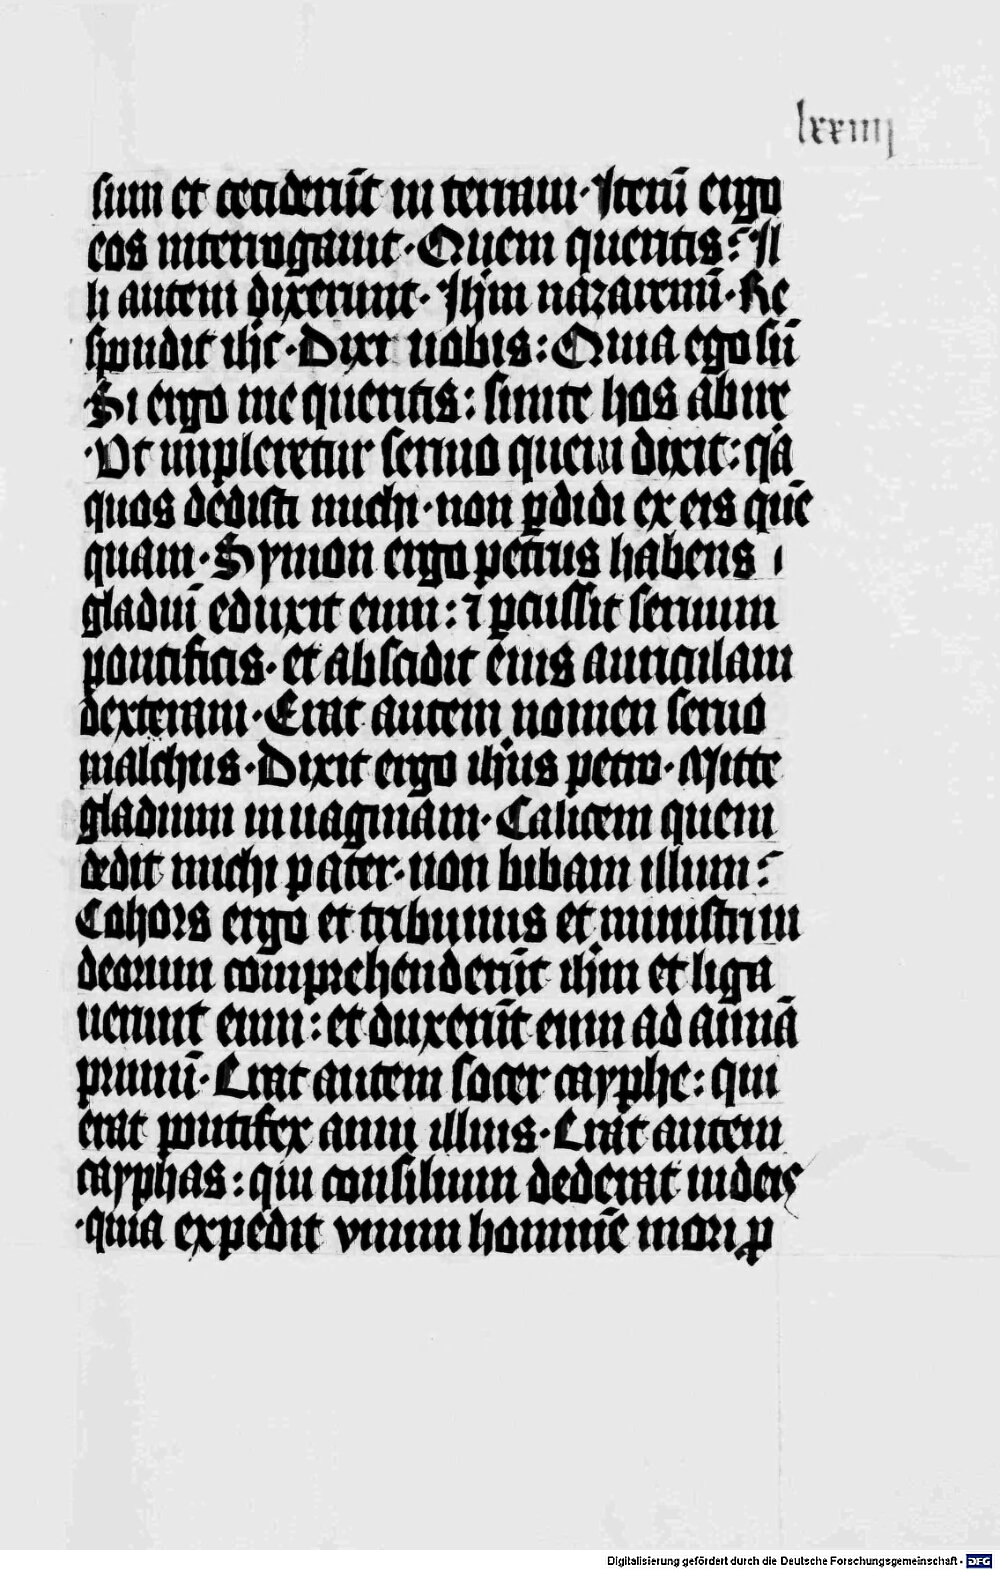 lxxiiij
sum et ceciderūt in terram· Iterū ergo
eos interrogauit· Quem queritis? Il
li autem dixerunt· Ihm nazarenū· Re
spondit ihc· Dixi uobis: Quia ego sū
Si ergo me queritis: sinite hos abire
·Vt impleretur sermo quem dixit: qa
quos dedisti michi· non ꝑdidi ex eis quē
quam· Symon ergo petrus habens
gladiū eduxit eum: ⁊ ꝑcussit seruum
pontificis· et abscidit eius auriculam
dexteram· Erat autem nomen seruo
malchus· Dixit ergo ihus petro· Mitte
gladium in uaginam· Calicem quem
dedit michi pater· non bibam illum?
Cohors ergo et tribunus et ministri iu
deorum comprehenderūt ihm et liga
uerunt eum: et duxerūt eum ad annā
primū· Erat autem socer cayphe: qui
erat pontifex anni illius· Erat autem
cayphas: qui consilium dederat iudeis
·quia expedit vnum hominē mori ꝓ
Digitalisierung gefördert durch die Deutsche Forschungsgemeinschaft - DFG